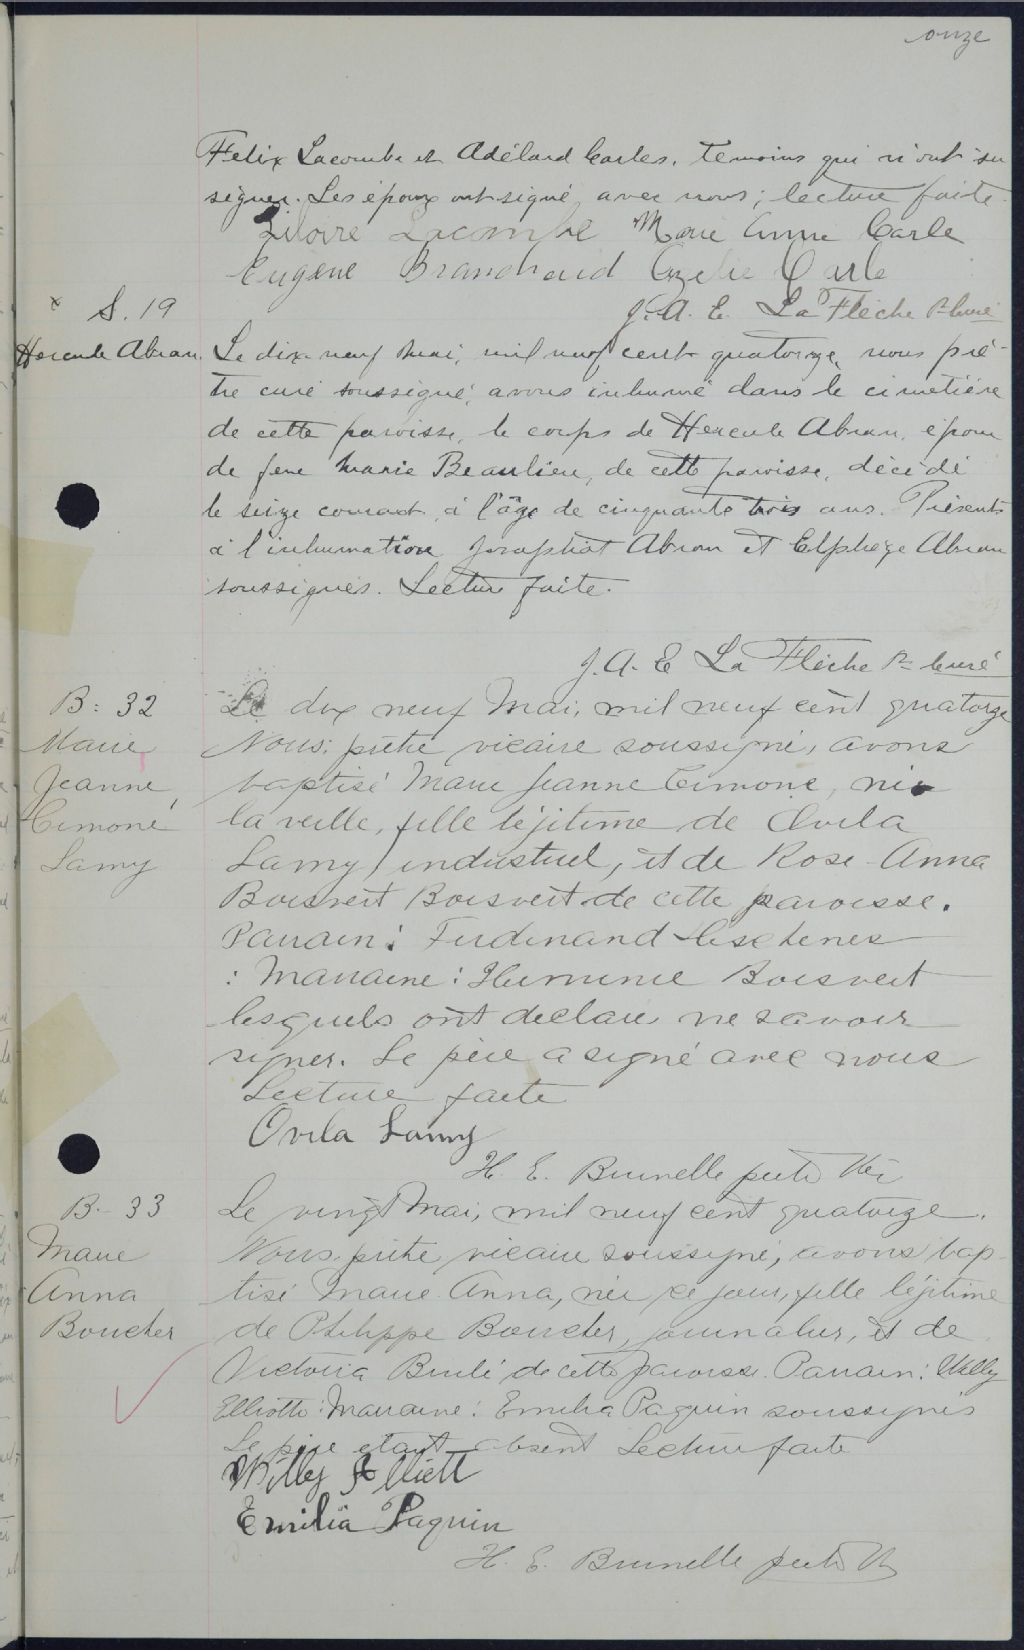 onze
Felix Lacombe et Adélard Carles. temoins qui n'ont su
signer. Les époux ont signé avec nous; lecture faite.
Liboire Lacombe Marie Anne Carle
Eugène Branchaud Carle
J. A. E. La Flèche Ptre curé
x S. 19
Hercule Abran
Le dix-neuf Mai, mil neuf cent quatorze, nous prê-
tre curé soussigné, avons inhumé dans le cimetière
de cette paroisse, le corps de Hercule Abran, époux
de feue Marie Beaulieu, de cette paroisse, décédé
le seize courant, à l'âge de cinquante trois ans. Présents
à l'inhumation Josaphat Abran et Elphège Abran
soussignés. Lecture faite.
J. A. E La Flèche Ptre curé
B: 32
Marie
Jeanne
Cimone
Lamy
Le dix neuf Mai, mil neuf cent quatorze
Nous, prêtre vicaire soussigné, avons
baptisé Marie Jeanne Cimone, née
la veille, fille légitime de Ovila
Lamy, industriel, et de Rose-Anna
Boisvert Boisvert de cette paroisse.
Parrain: Ferdinand Deschenes
: Marraine: Herminie Boisvert
lesquels ont declaré ne savoir
signer. Le père a signé avec nous
Lecture faite
Ovila Lamy
H. E. Brunelle ptre Vic
B. 33
Marie
Anna
Boucher
Le vingt Mai, mil neuf cent quatorze.
Nous, prêtre vicaire soussigné, avons bap-
tisé Marie Anna, née ce jour, fille légitime
de Philippe Boucher, journalier, et de
Victoria Brulé de cette paroisse. Parrain: Willy
Elliotte: Marraine: Emilia Paquin soussignés
Le père étant absent Lecture faite
Willy Elliott
Emilia Paquin
H. E. Brunelle ptre V